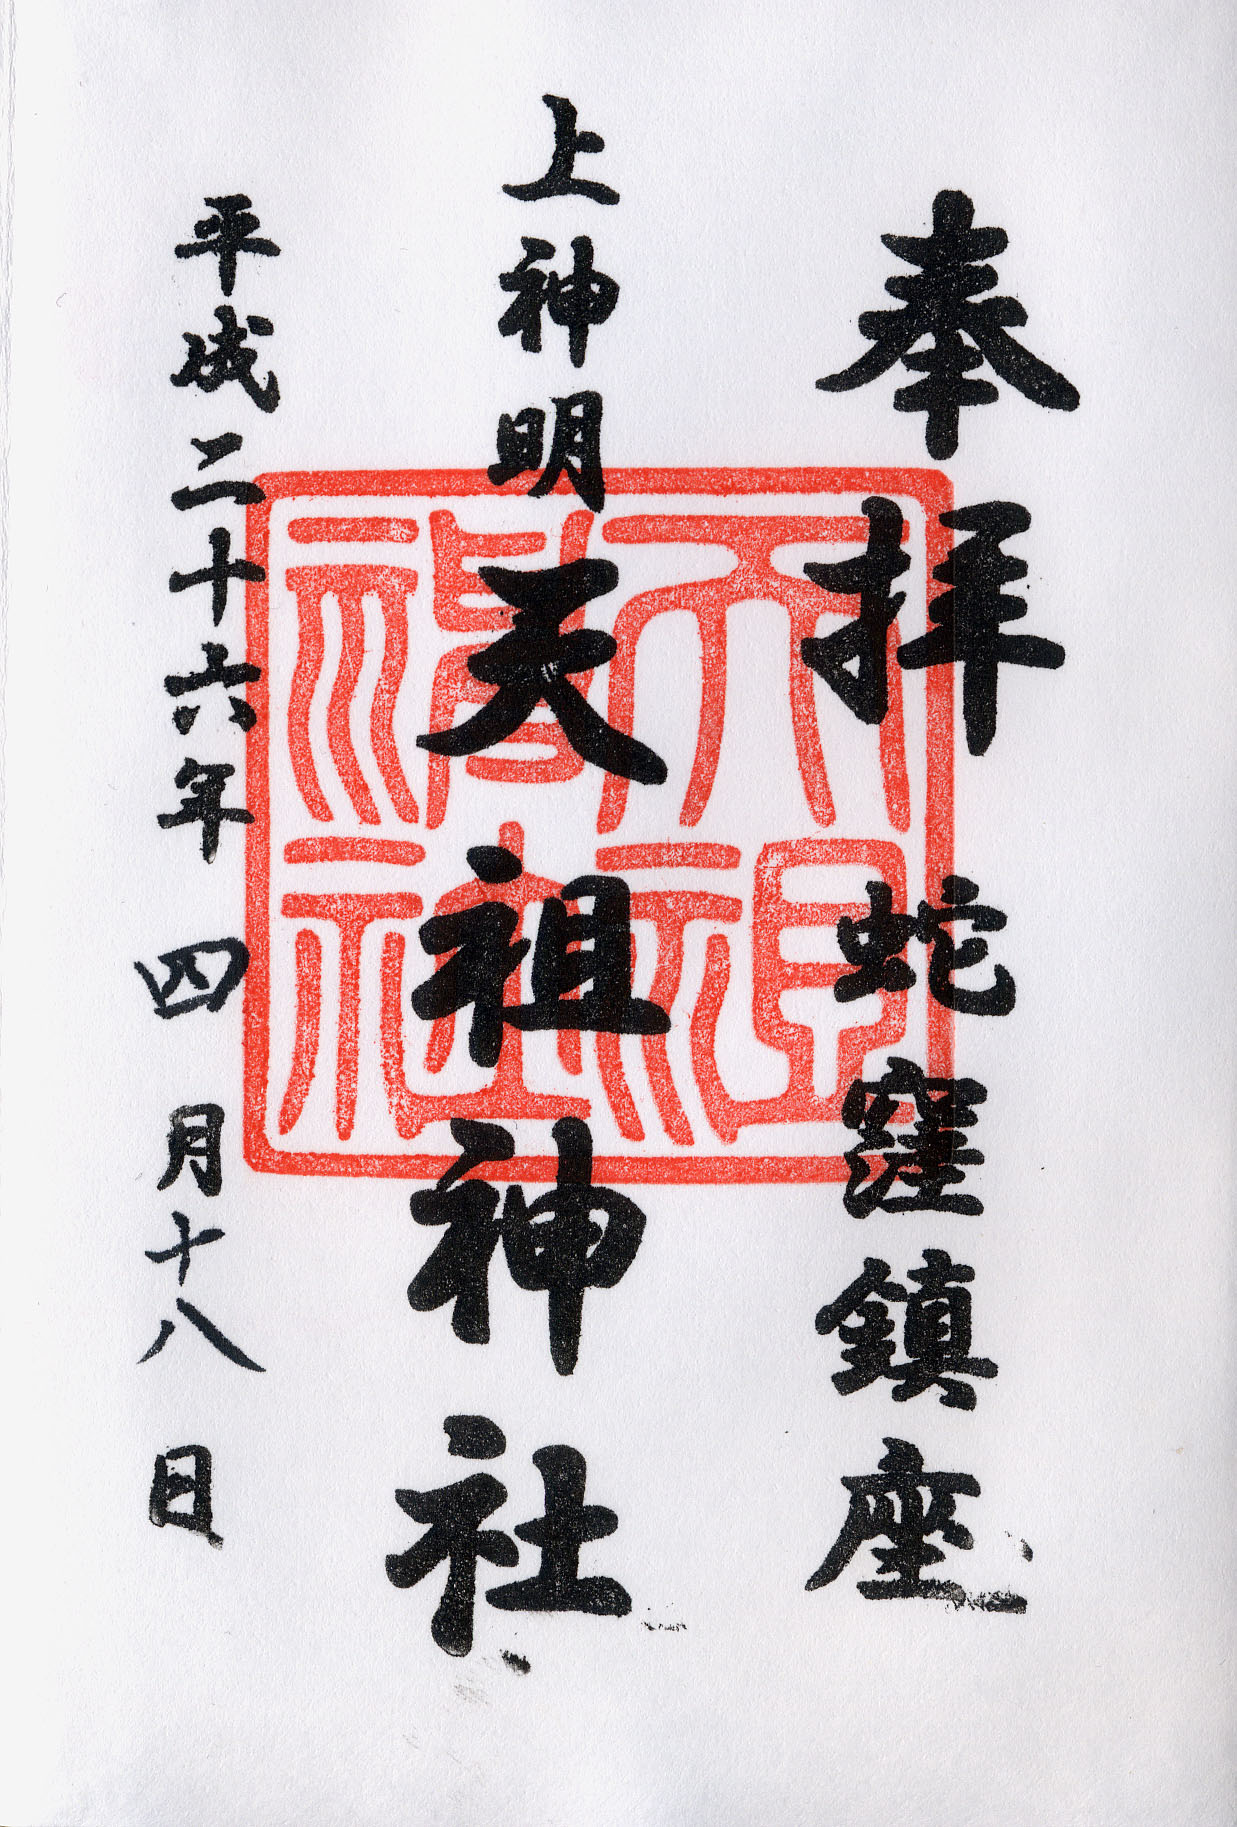 奉拝 蛇窪鎮座
上神明天祖神社
平成二十六年四月十八日
天祖神社